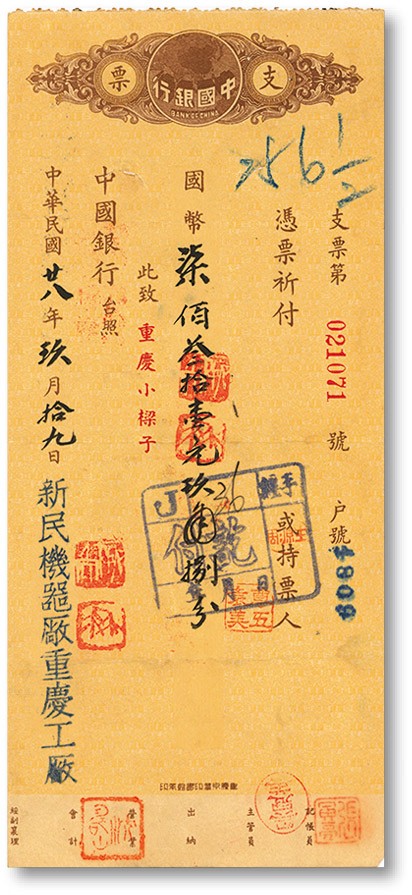 支票
中國銀行
BANK OF CHINA
支票第 021071 號 户號
憑票祈付 或持票人
國幣柒佰叁拾壹元玖角捌分
此致 重慶小樑子
中國銀行 台照
中華民國廿八年玖月拾九日
新民機器廠重慶工廠
付訖
重慶京華印書館承印
記帳員
主管員
出納
營業
會計
經副襄理